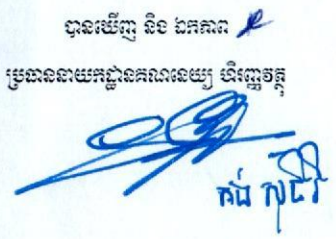 បានឃើញ និង ឯកភាព
ប្រធាននាយកដ្ឋានគណនេយ្យ ហិរញ្ញវត្ថុ
គង់ សុជីវ